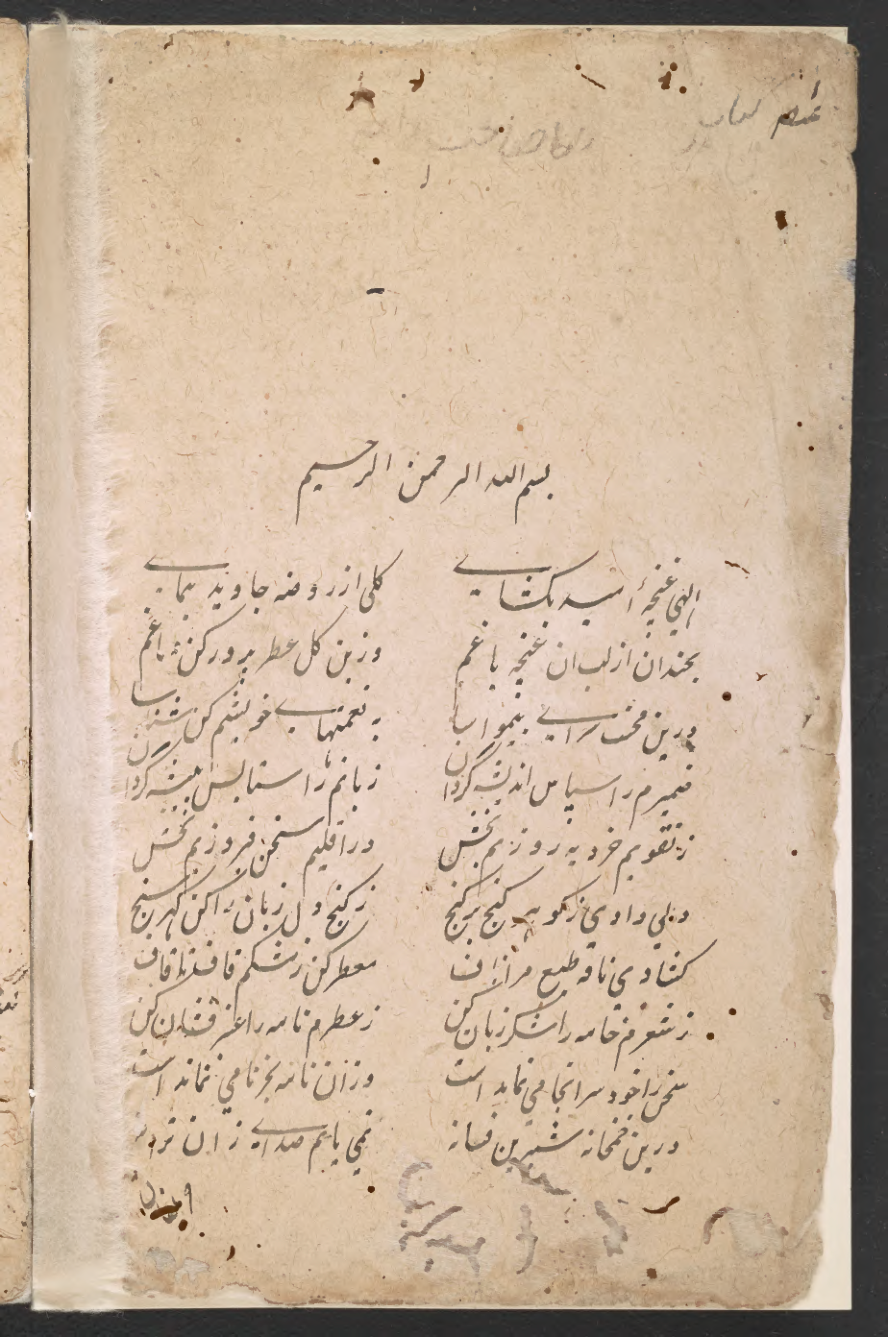 بسم الله الرحمن الرحیم
الهی غنچهٔ امید بکشای کلی از روضه جاوید بنمای
بخندان از لب ان غنچه باغم وزین کل عطر پرور کن دماغم
درین محنت سرای بیمواسا به نعمتهای خویشم کن شناسا
ضمیرم را سپاس اندیشه گردان زبانم را ستایس پیشه گردان
ز تقویم خرد بهروزیم بخش در اقلیم سخن فیروزیم بخش
دلی دادی ز کوهر کنج بر کنج ز کنج دل زبان را کن کهر سنج
کشادی نافه طبع مرا ناف معطر کن ز مشکم قاف تا قاف
ز شعرم خامه را شکر زبان کن ز عطرم نامه را عنبر فشان کن
سخن را خود سرانجامی نمانده است وزان نامه بجز نامی نمانده است
درین خمخانه شیرین فسانه نمی یابم صدای زان ترانه